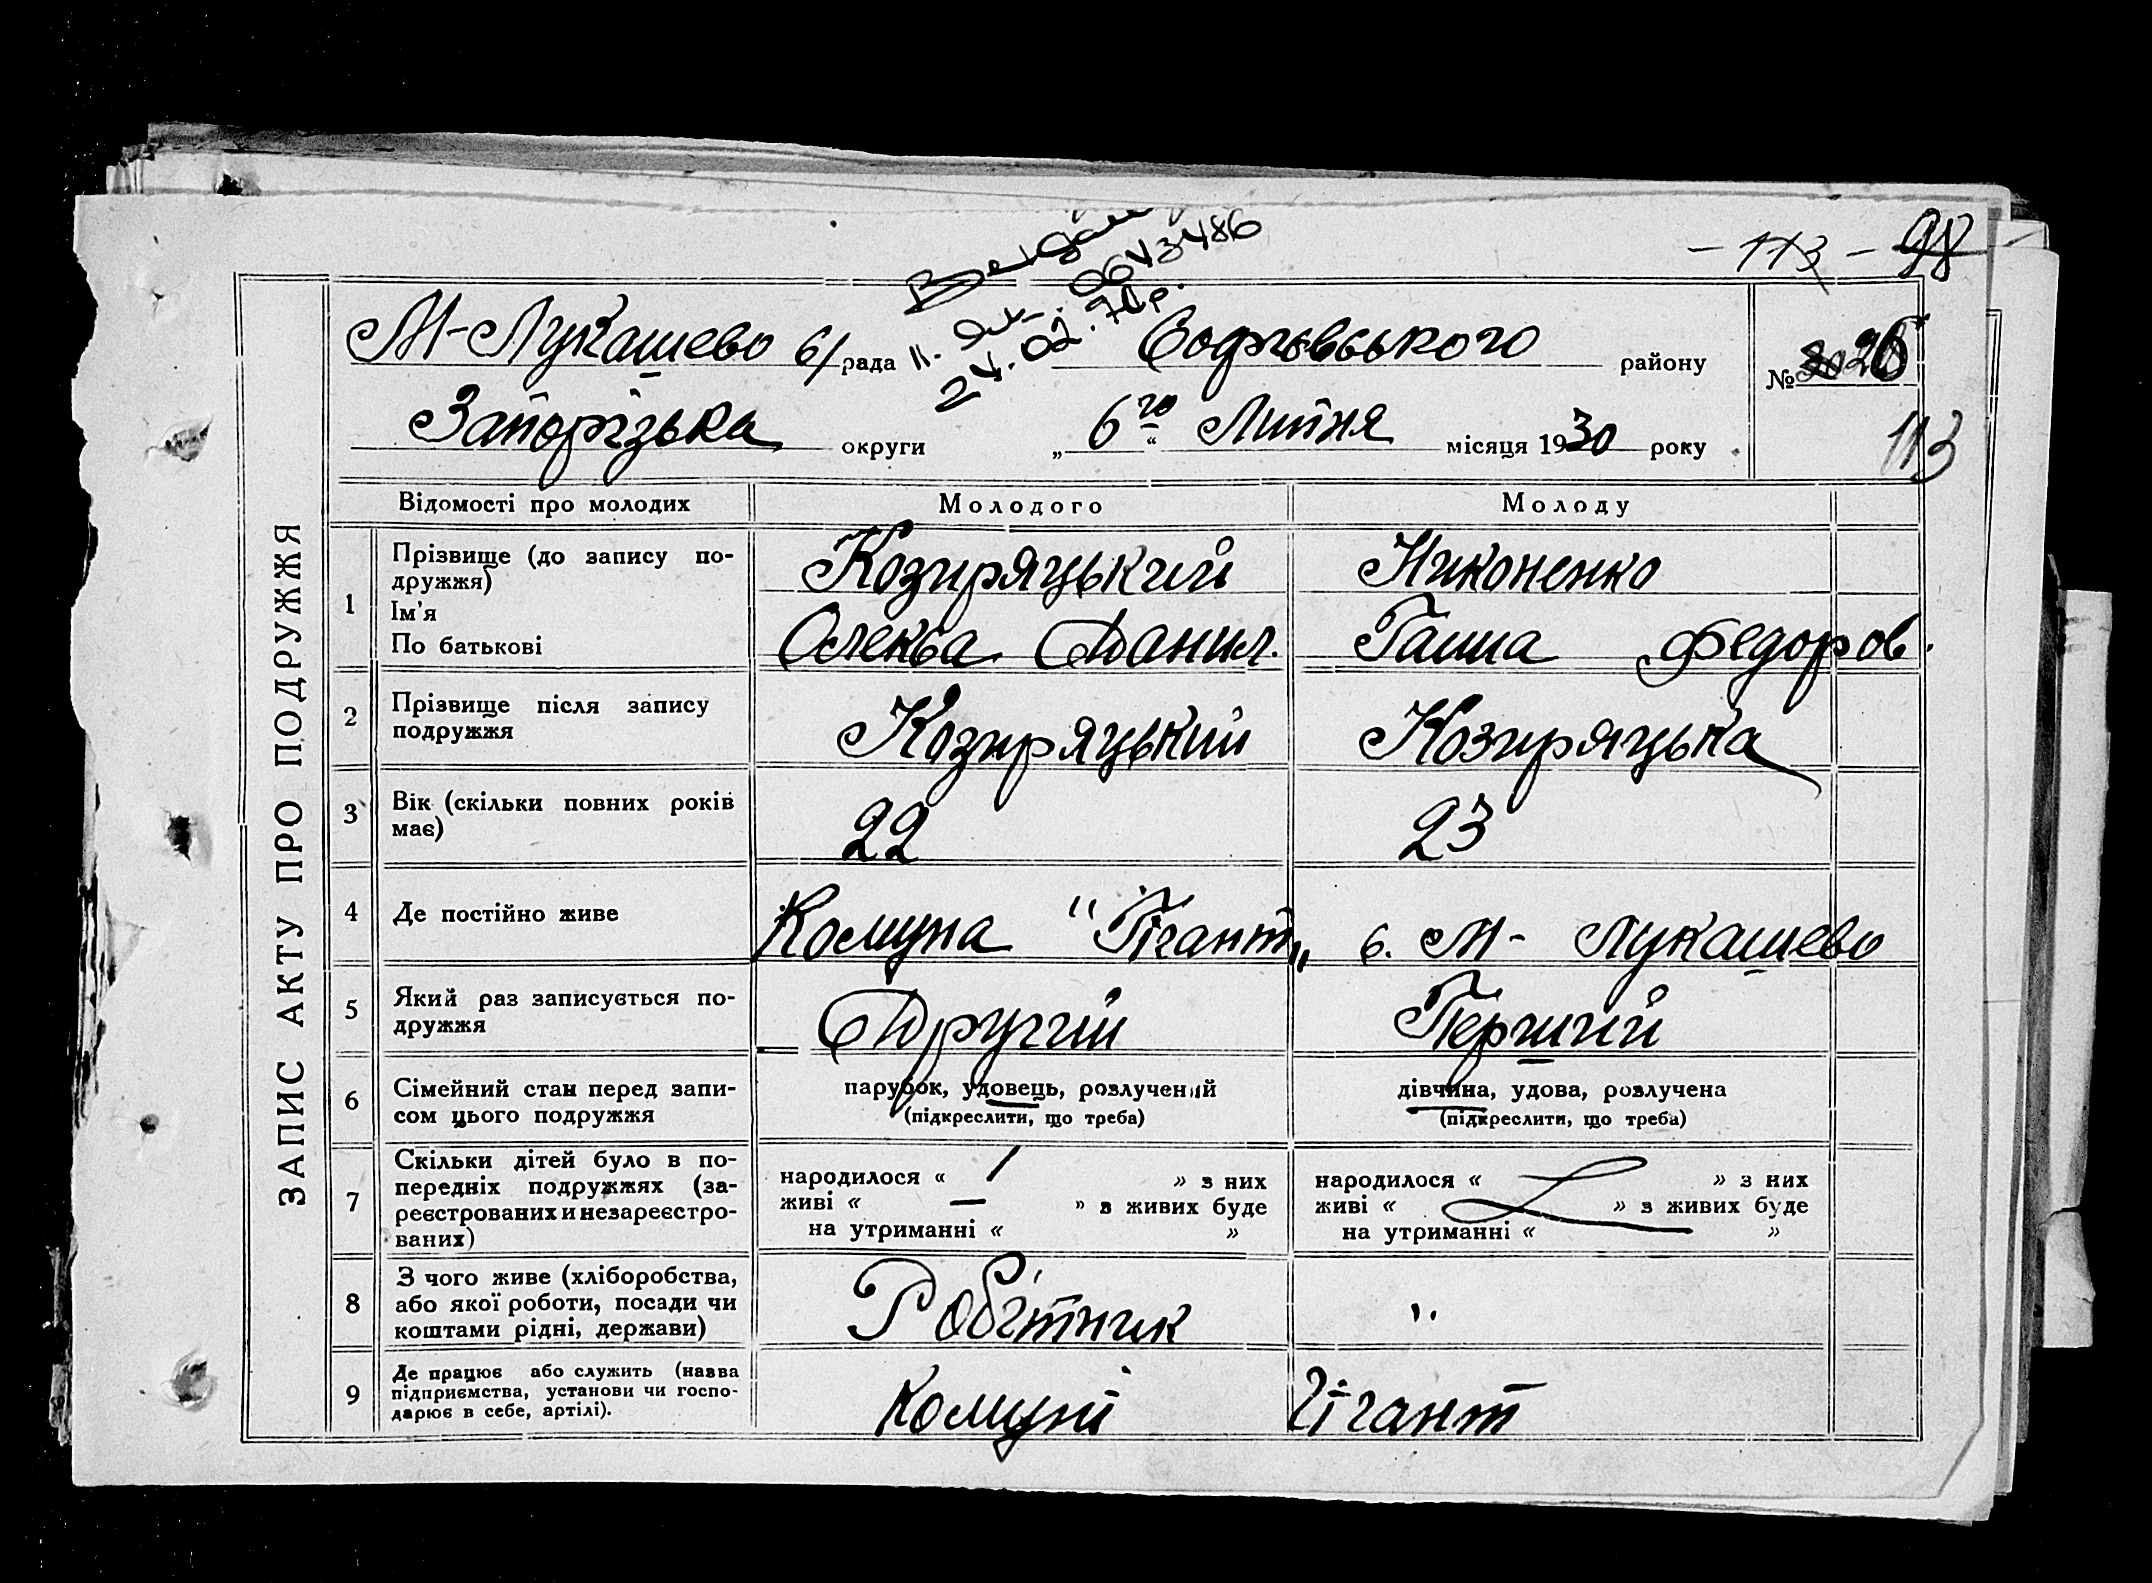 - 113 - 98
М-Лукашево с/рада Софіївського району
№ 26
11. 0643486
24.02.
Запорізька округи „6го“ Липня місяця 1930 року
113
ЗАПИС АКТУ ПРО ПОДРУЖЖЯ
Відомості про молодих Молодого Молоду
1 Прізвище (до запису по-
дружжя) Козиряцький Никоненко
Ім'я
По батькові Олекса Данил. Ганна Федоров.
2 Прізвище після запису
подружжя Козиряцький Козиряцька
3 Вік (скільки повних років
має) 22 23
4 Де постійно живе Комуна "Гігант" с. М- Лукашево
5 Який раз записується по-
дружжя Другий Перший
6 Сімейний стан перед запи-
сом цього подружжя
парубок, удовець, розлучений дівчина, удова, розлучена
(підкреслити, що треба) (підкреслити, що треба)
7 Скільки дітей було в по-
передніх подружжях (за-
реєстрованих и незареєстро-
ваних)
народилося « 1 » з них народилося « » з них
живі « — » з живих буде живі « » з живих буде
на утриманні « » на утриманні « »
8 З чого живе (хліборобства,
або якої роботи, посади чи
коштами рідні, держави) Робітник "
9 Де працює або служить (назва
підприємства, установи чи госпо-
дарює в себе, артілі). Комуні Гігант